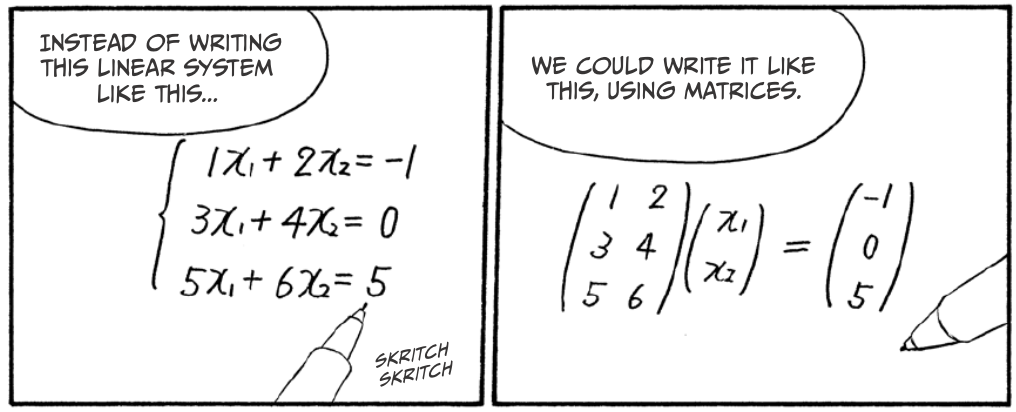 INSTEAD OF WRITING
THIS LINEAR SYSTEM
LIKE THIS...
1x₁ + 2x₂ = -1
3x₁ + 4x₂ = 0
5x₁ + 6x₂ = 5
SKRITCH
SKRITCH
WE COULD WRITE IT LIKE
THIS, USING MATRICES.
1 2
3 4
5 6
x₁
x₂
=
-1
0
5